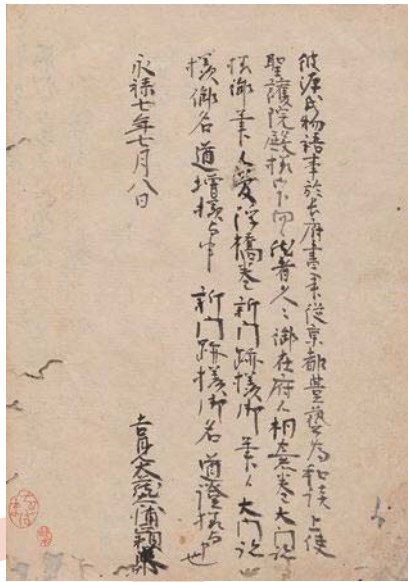 源氏物語事於長府書従京都豊藝為和談上使
聖護院殿様御下向久々御在府桐壺巻大門跡
様御筆夢浮橋巻新門跡様御筆大門跡
様御名道増様与申 新門跡様御名道澄様与申也
永禄七年七月八日
吉見大蔵大輔